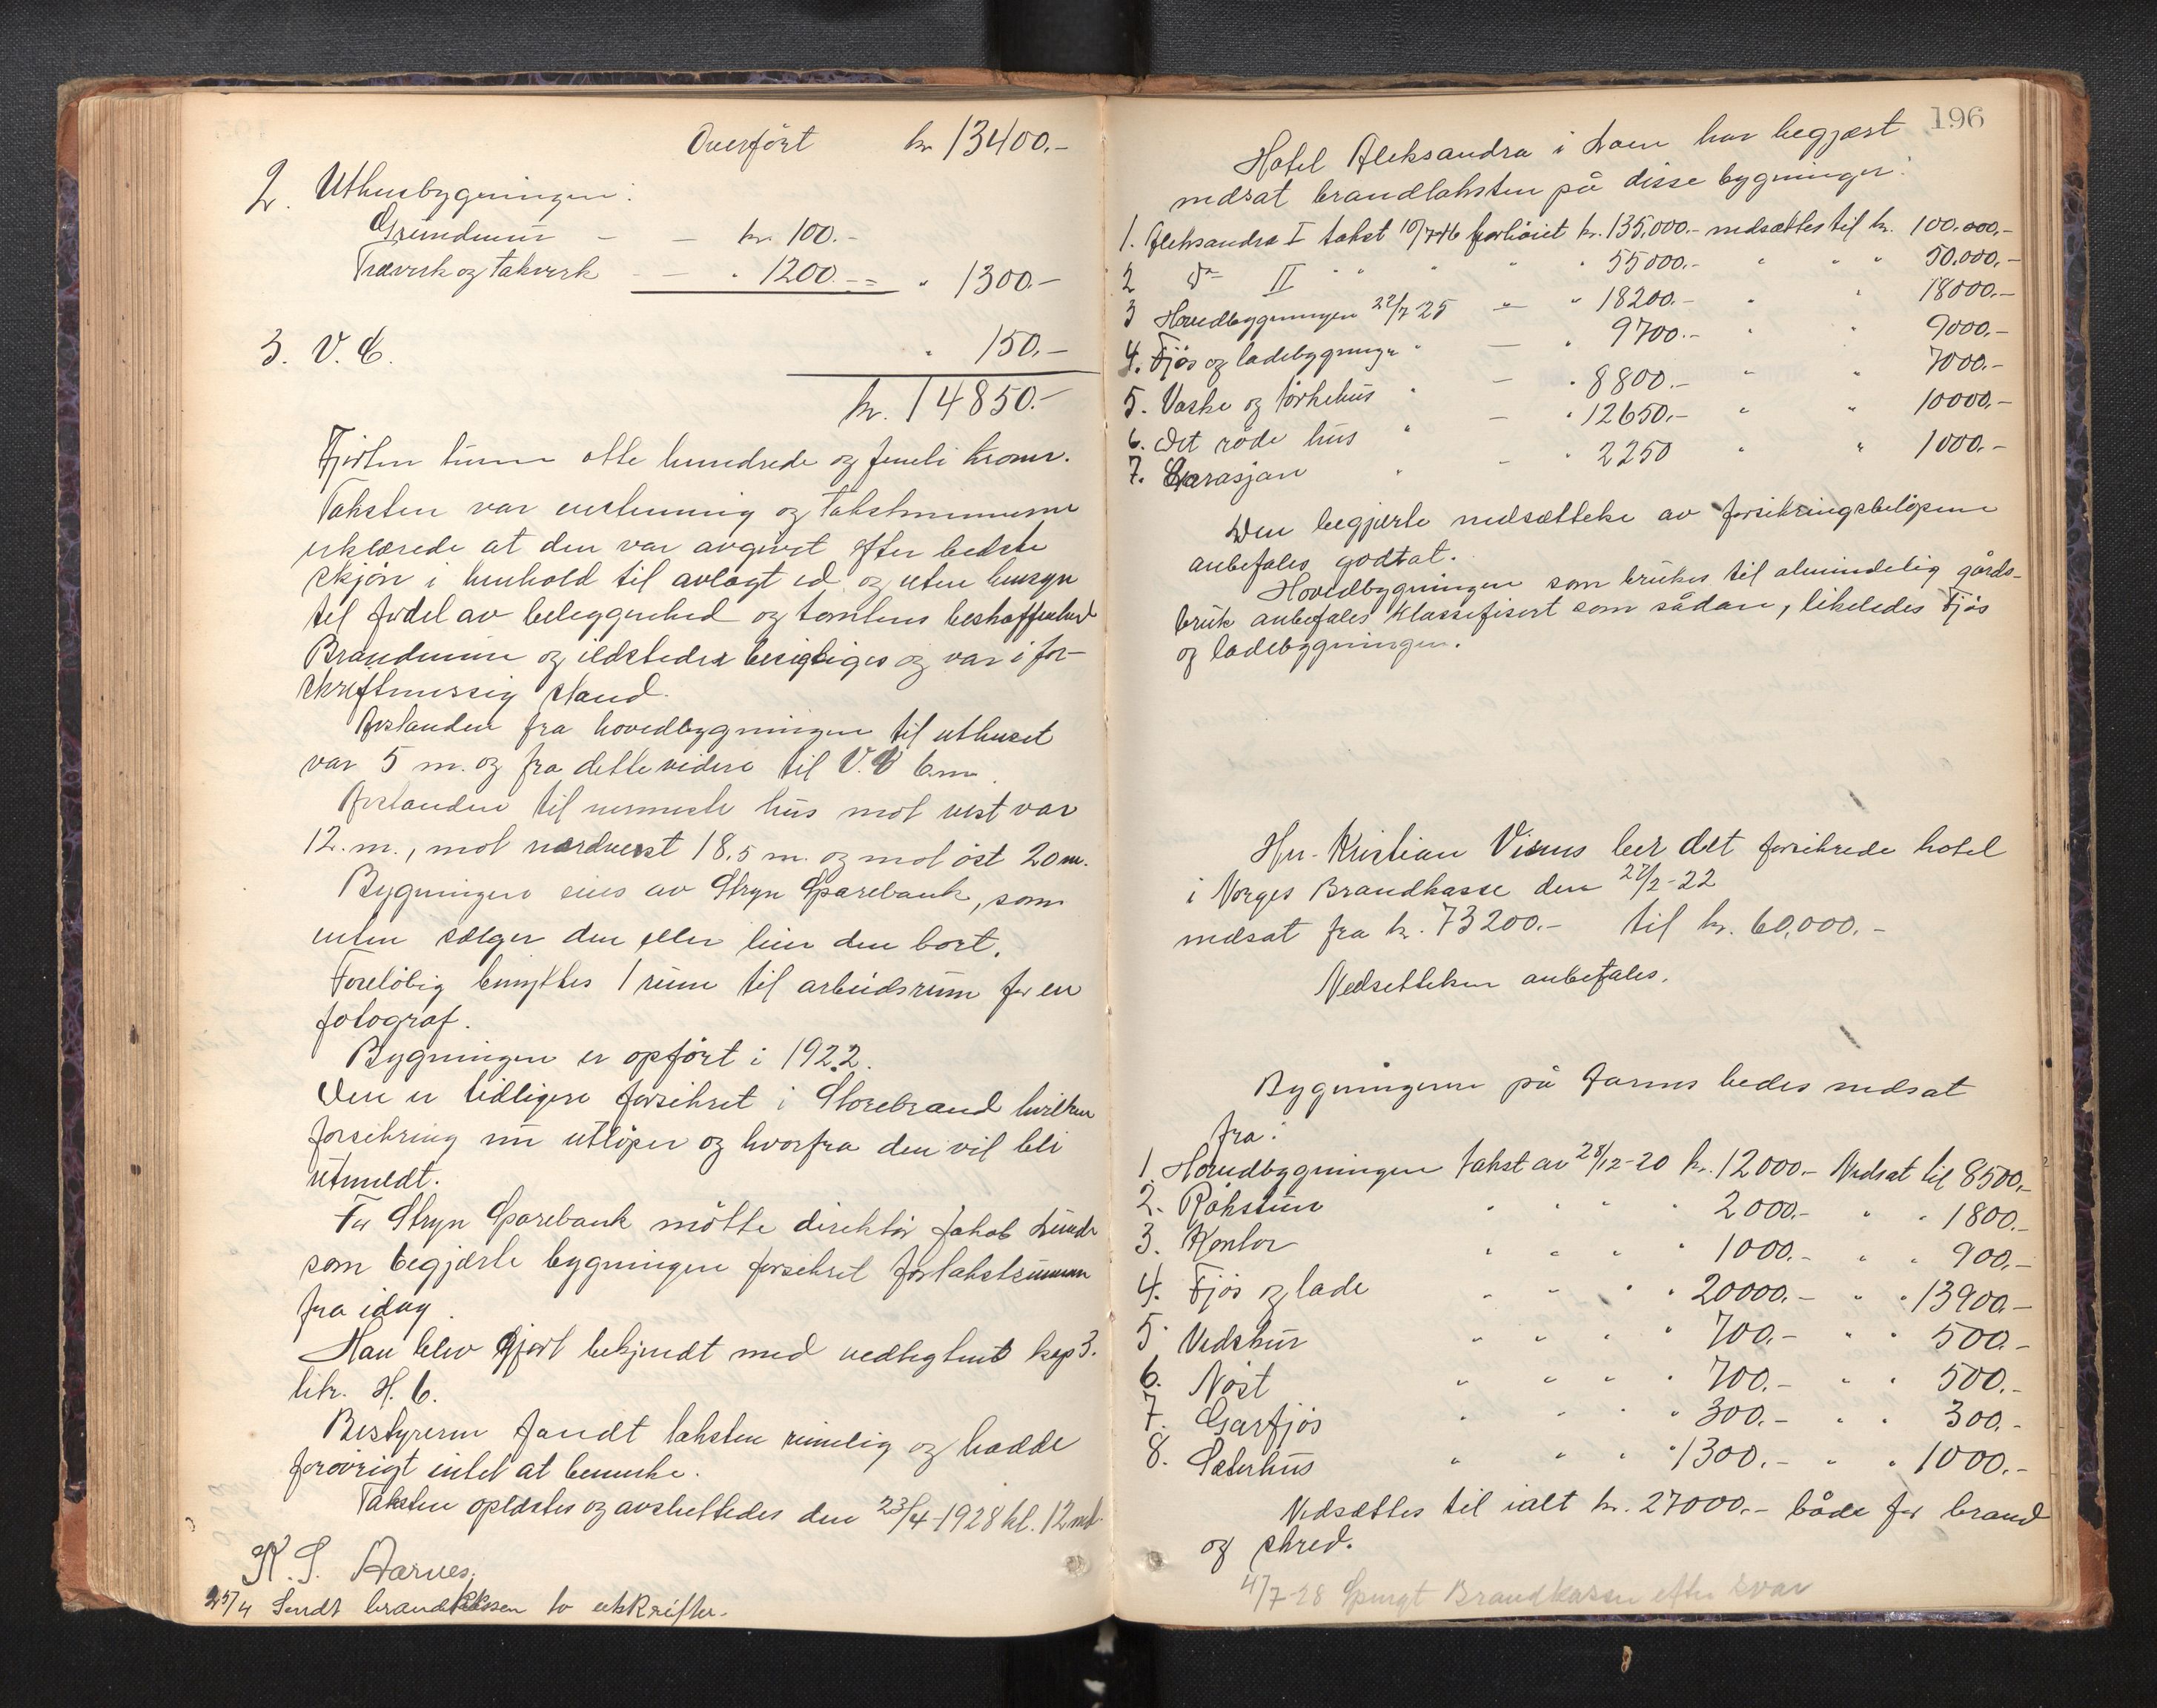 Overført kr. 13400.-
2. Uthusbygningen:
Grundmur - - kr. 100.-
Træverk og takverk - - " 1200.- = " 1300.-
3. V. C. " 150.-
kr. 14850.-
Fjorten tusen otte hundrede og femti kroner.
Taksten var enstemmig og takstmennene
erklærede at den var avgivet efter bedste
skjøn i henhold til avlagt ed og uten hensyn
til fordel av beliggenhed og tomtens beskaffenhed
Brandmur og ildsteder besigtiges og var i for-
skriftmessig stand.
Avstanden fra hovedbygningen til uthuset
var 5 m. og fra dette videre til V.C 6 m.
Avstanden til nærmeste hus mot vest var
12. m., mot nordvest 18.5 m. og mot øst 20 m.
Bygningen eies av Stryn Sparebank, som
enten sælger den eller leier den bort.
Foreløbig benyttes 1 rum til arbeidsrum for en
fotograf.
Bygningen er opført i 1922.
Den er tidligere forsikret i Storebrand hvilken
forsikring nu utløper og hvorfra den vil bli
utmeldt.
For Stryn Sparebank møtte direktør Jakob Lunde
som begjærte bygningen forsikret for takstsummen
fra idag.
Han blev gjort bekjendt med vedtegtens kap 3.
litr. H. 6.
Bestyreren fandt taksten rimelig og hadde
forøvrigt intet at bemerke.
Taksten oplæstes og avsluttedes den 23/4-1928 kl. 12 md.
K. S. Aarnes.
25/4 Sendt brandkassen to utskrifter.
196
Hotel Aleksandra i Loen har begjært
nedsat brandtaksten på disse bygninger:
1. Aleksandra I takst forhöiet kr. 135,000.- nedsættes til kr. 100.000,-
2 do II " " " " " 55000.- " " " 50.000,-
3 Hovedbygningen 22/7 25 - " 18200.- " " 18000.-
4. Fjøs og ladebygninge " - " 9700.- " " 9000.-
5. Vaske og tørkehus " - " 8800.- " " 7000.-
6. Det røde hus " - " 12650.- " " 10000.-
7. Garasjan " - " 2250 " " 1000.-
Den begjærte nedsættelse av forsikringsbeløpene
anbefales godtat.
Hovedbygningen som brukes til almindelig gårds-
bruk anbefales klassifisert som sådan, likeledes fjøs
og ladebygningen.
Hr. Kristian Visnes ber det forsikrede hotel
i Norges Brandkasse den 27/2-22
nedsat fra kr. 73200.- til kr. 60,000.-
Nedsettelsen anbefales.
Bygningerne på bedes nedsat
fra:
1. Hovedbygningen takst av 28/12-20 kr. 12000.- Nedsat til 8500,-
2. Røkstun " " " " 2000.- " " 1800.-
3. Kontor " " " " 1000.- " " 900,-
4. Fjøs og lade " " " " 20000.- " " 13900.-
5 Vedskur " " " " 700,- " " 500.-
6. Nøst " " " " 700.- " " 500.-
7. Garfjøs " " " 300.- " " 300.-
8. Sæterhus " " " " 1300.- " " 1000.-
Nedsættes til ialt kr. 27000.- både for brand
og skred.
4/7-28 Spurgt Brandkassen efter svar